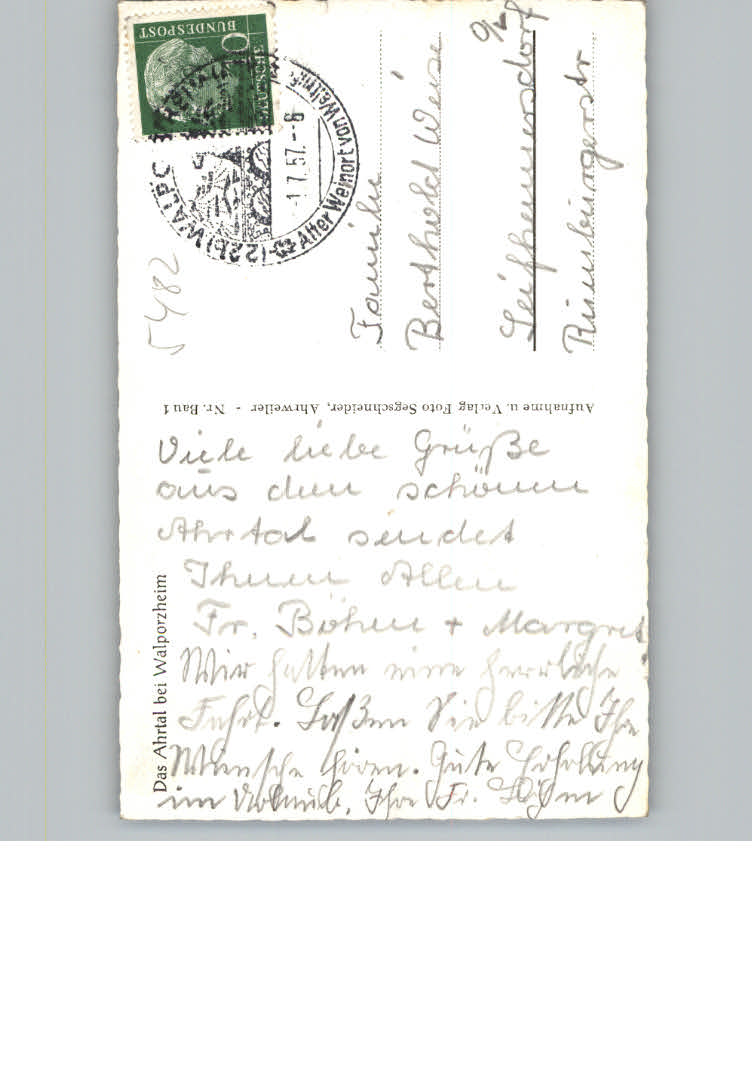 DEUTSCHE BUNDESPOST
10
(22b) WALPO
Alter Weinort von Weltruf
-1.7.57.-8
5482
Familie
Berthold Weise
Leifhennersdorf
O/L
Rumburgerstr
Aufnahme u. Verlag Foto Segschneider, Ahrweiler - Nr. Bau 1
Das Ahrtal bei Walporzheim
Viele liebe Grüße
aus dem schönen
Ahrtal sendet
Ihnen Allen
Fr. Böhm + Margret
Wir hatten eine herrliche
Fahrt. Laßen Sie bitte Ihre
Wünsche hören. Gute Erholung
im Urlaub, Ihre Fr. Böhm